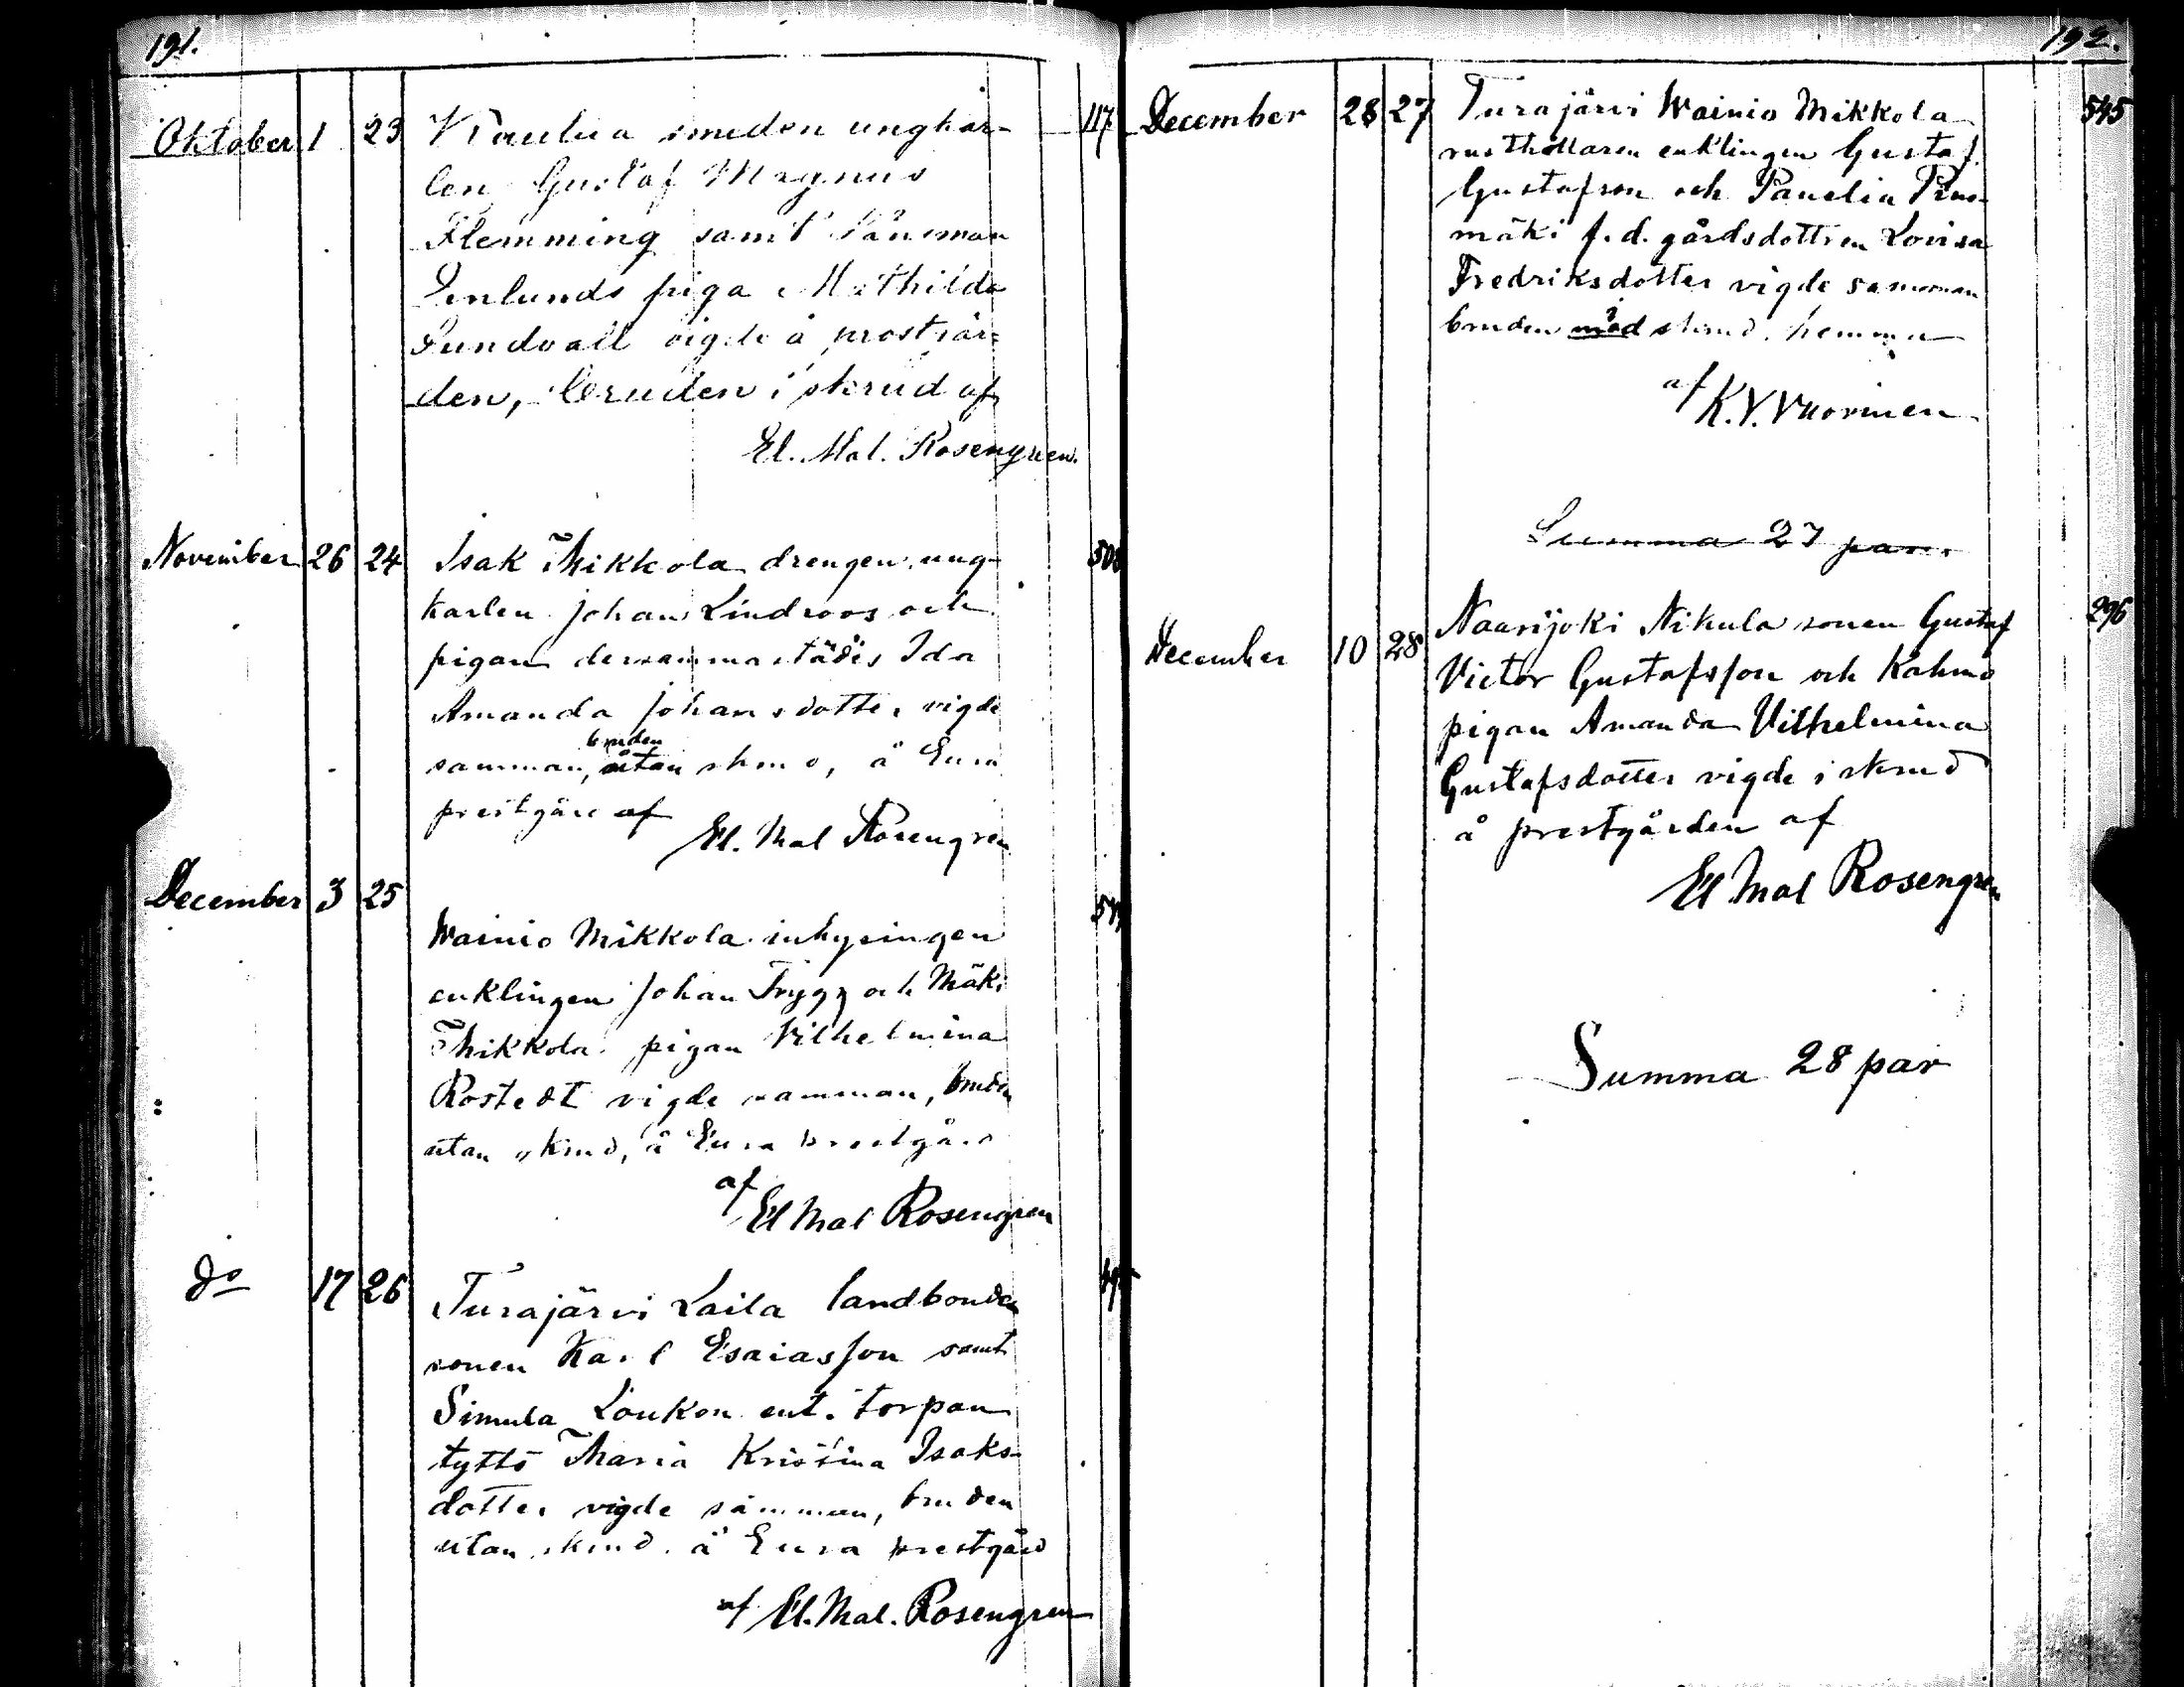 191.
Oktober 1 23 Kiaulua smeden ungkar- 117
len Gustaf Magnus
Flemming samt Länsman
Enlunds piga Mathilda
Sundvall vigde å prostgår-
den, bruden i skrud af
El. Mal. Rosengren.
November 26 24 Isak Mikkola drengen, ung-
karlen Johan Lindroos och
pigan dersammastädes Ida
Amanda Johansdotter vigde
bruden
samman, utan skrud, å Eura
prestgård af
El. Mal Rosengren
December 3 25
Wainio Mikkola inhysingen
enklingen Johan Trygg och Mäki
Mikkola pigan Vilhelmina
Rostedt vigde samman, bruden
utan skrud, å Eura prestgård
af
El Mal Rosengren
do 17 26 Turajärvi Laila landbonde
sonen Karl Esaiasson samt
Simula Loukon ent. torpan
tyttö Maria Kristina Isaks-
dotter vigde samman, bruden
utan skrud å Eura prestgård
af El. Mal. Rosengren
192.
December 28 27 Turajärvi Wainio Mikkola 545
rusthållaren enklingen Gustaf
Gustafson och Panelia
mäki f. d. gårdsdottren Lovisa
Fredriksdotter vigde samman
bruden med i skrud hemma
af K. V. Vuorinen
Summa 27 par.
December 10 28 Naarijoki Nikula sonen Gustaf 296
Victor Gustafsson och Kahmo
pigan Amanda Vilhelmina
Gustafsdotter vigde i skrud
å prestgården af
El Mal Rosengren
Summa 28 par